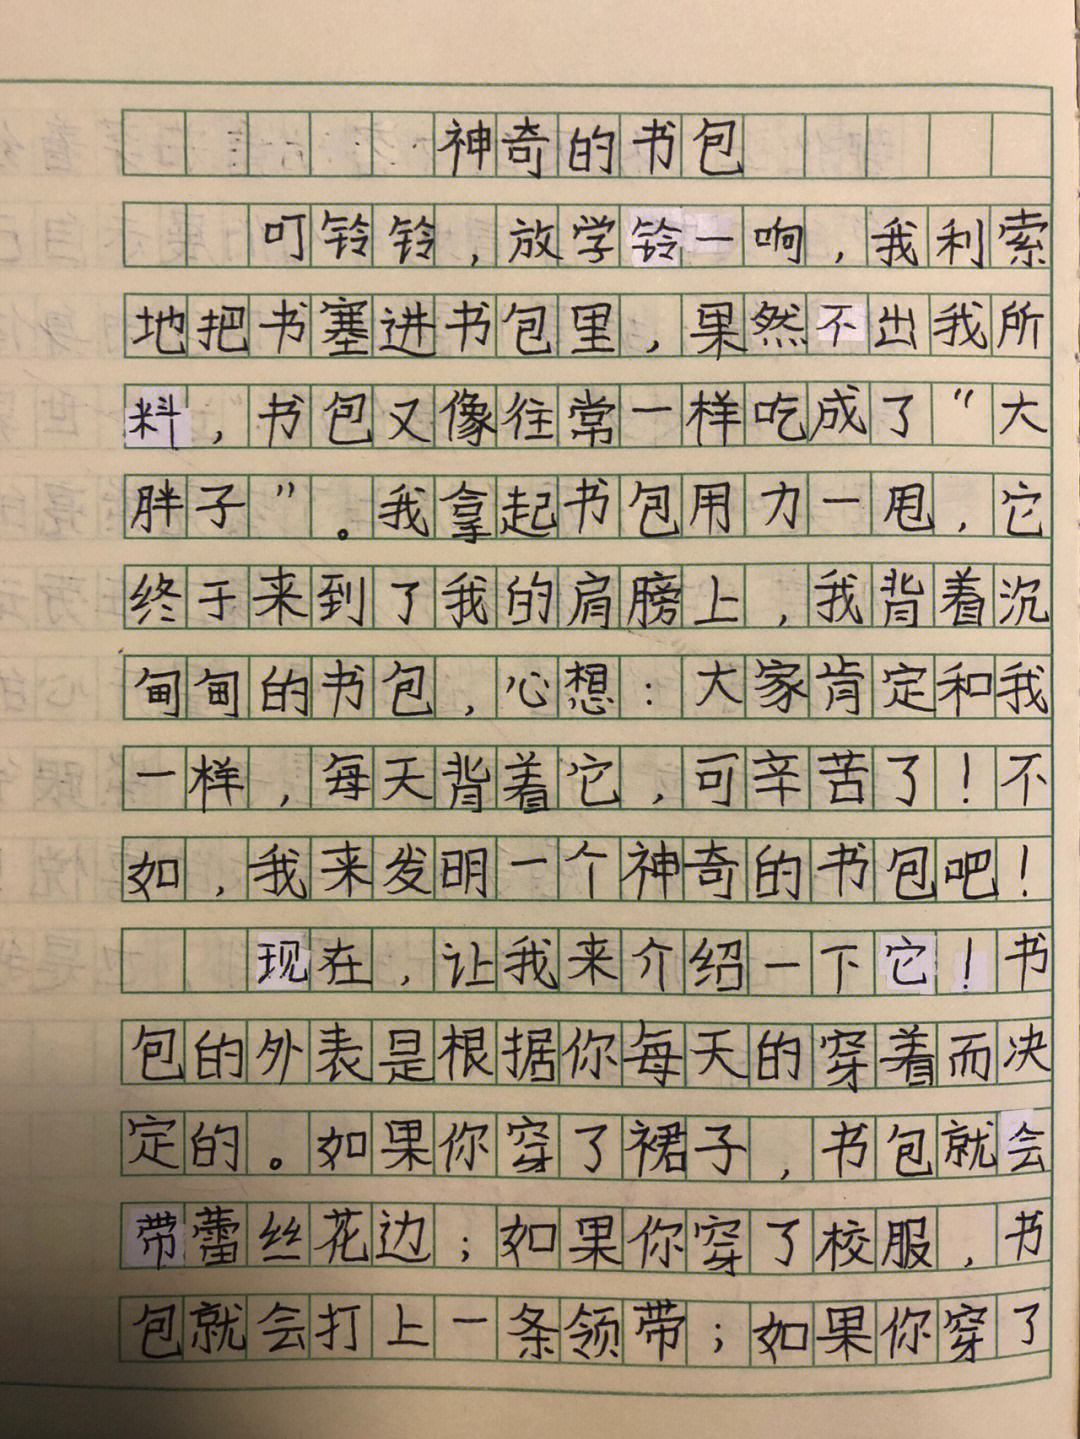 神奇的书包
叮铃铃，放学铃一响，我利索
地把书塞进书包里，果然不出我所
料，书包又像往常一样吃成了“大
胖子”。我拿起书包用力一甩，它
终于来到了我的肩膀上，我背着沉
甸甸的书包，心想：大家肯定和我
一样，每天背着它，可辛苦了！不
如，我来发明一个神奇的书包吧！
现在，让我来介绍一下它！书
包的外表是根据你每天的穿着而决
定的。如果你穿了裙子，书包就会
带蕾丝花边；如果你穿了校服，书
包就会打上一条领带；如果你穿了